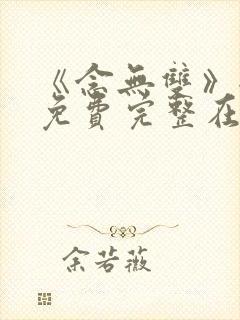 《念無雙》
免費完整在
余若薇